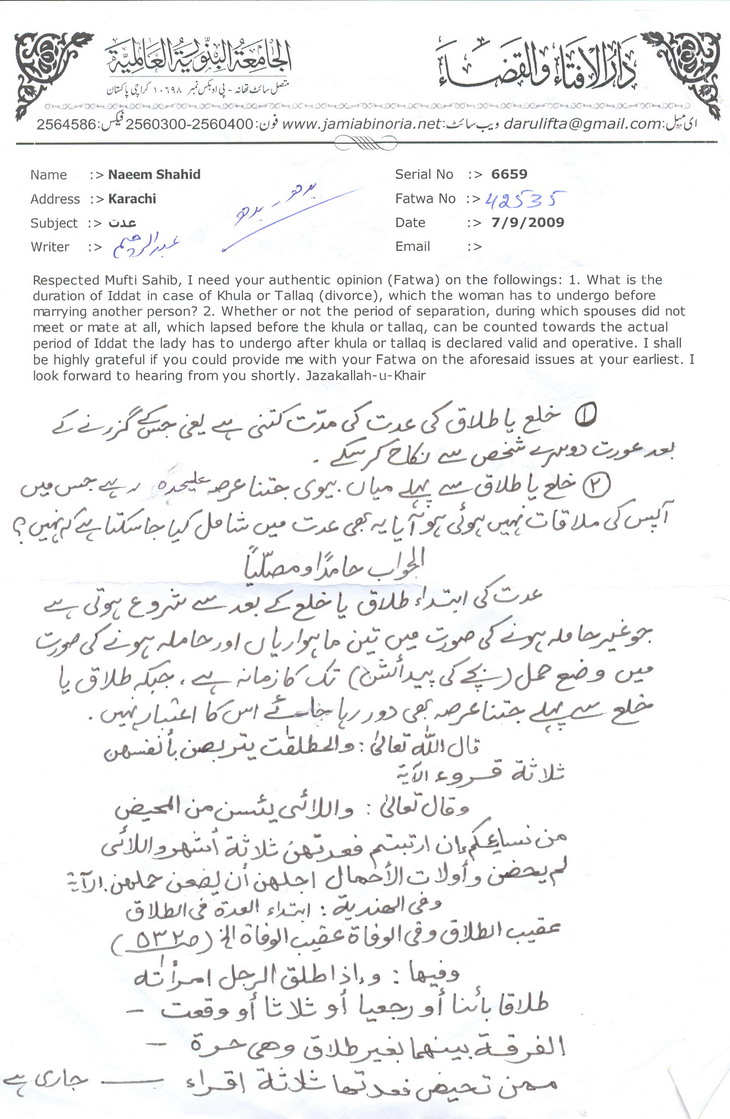 الجامعة البنورية العالمية
دار الافتاء والقضاء
متصل سائٹ تھانہ - پی او بکس نمبر ۱۰۶۹۸ کراچی پاکستان
ای میل: darulifta@gmail.com ویب سائٹ: www.jamiabinoria.net فون: 2560300-2560400 فیکس: 2564586
Name :> Naeem Shahid
Serial No :> 6659
Address :> Karachi
Fatwa No :> 42535
Subject :> عدت
Date :> 7/9/2009
Writer :> عبدالرحیم
Email :>
Respected Mufti Sahib, I need your authentic opinion (Fatwa) on the followings: 1. What is the
duration of Iddat in case of Khula or Tallaq (divorce), which the woman has to undergo before
marrying another person? 2. Whether or not the period of separation, during which spouses did not
meet or mate at all, which lapsed before the khula or tallaq, can be counted towards the actual
period of Iddat the lady has to undergo after khula or tallaq is declared valid and operative. I shall
be highly grateful if you could provide me with your Fatwa on the aforesaid issues at your earliest. I
look forward to hearing from you shortly. Jazakallah-u-Khair
① خلع یا طلاق کی عدت کی مدّت کتنی ہے یعنی جس کے گزرنے کے
بعد عورت دوسرے شخص سے نکاح کر سکے۔
② خلع یا طلاق سے پہلے میاں بیوی جتنا عرصہ علیحدہ رہے جس میں
آپس کی ملاقات نہیں ہوئی ہو آیا یہ بھی عدت میں شامل کیا جا سکتا ہے کہ نہیں؟
الجواب حامدًا ومصلّیاً
عدت کی ابتداء طلاق یا خلع کے بعد سے شروع ہوتی ہے
جو غیر حاملہ ہونے کی صورت میں تین ماہواریاں اور حاملہ ہونے کی صورت
میں وضع حمل (بچے کی پیدائش) تک کا زمانہ ہے، جبکہ طلاق یا
خلع سے پہلے جتنا عرصہ بھی دور رہا جائے اس کا اعتبار نہیں۔
قال اللہ تعالیٰ: والمطلقٰت یتربصن بأنفسهن
ثلاثة قروء الآیة
وقال تعالیٰ: واللائی یئسن من المحیض
من نسائکم إن ارتبتم فعدتهن ثلاثة أشهر واللائی
لم یحضن وأولات الأحمال اجلهن أن یضعن حملهن. الآیة
وفی الهندیة: ابتداء العدة فی الطلاق
عقیب الطلاق وفی الوفاة عقیب الوفاة الخ (ص۵۳۲)
وفیها: وإذا طلق الرجل امرأته
طلاقا بائنا أو رجعیا أو ثلاثا أو وقعت -
الفرقة بینهما بغیر طلاق وهی حرة -
ممن تحیض فعدتها ثلاثة اقراء — جاری ہے